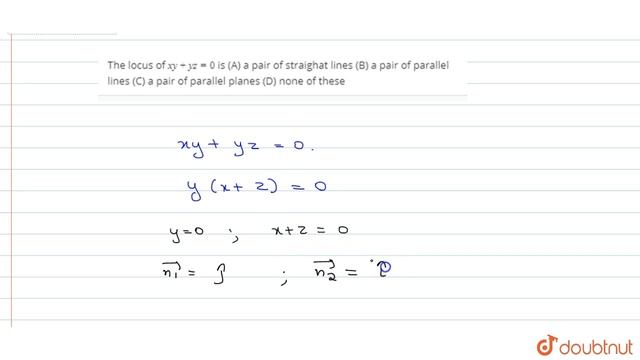 The locus of xy + yz = 0 is (A) a pair of straighat lines (B) a pair of parallel
lines (C) a pair of parallel planes (D) none of these
xy + yz = 0.
y (x + z) = 0
y=0 ; x+z = 0
n₁ = ĵ ; n₂ = î
doubtnut